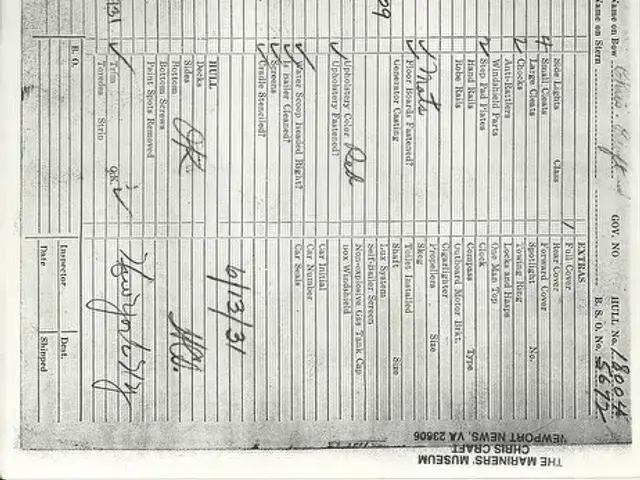 Name on Bow Chris Craft
Name on Stern
GOV. NO
HULL No. 18004
B. S. O. No. 5672
Side Lights Class
4 Small Cleats
Large Cleats
2 Chocks
Auti-Rattlers
Windshield Parts
2 Step Pad Plates
Hand Rails
Robe Rails
✓ Mats
✓ Floor Boards Fastened?
Generator Casting
Upholstery Color Red
✓ Upholstery Fastened?
✓ Water Scoop Headed Right?
✓ Is Bailer Cleaned?
✓ Screens
✓ Cradle Stenciled?
HULL
Decks
Sides OK
Bottom
Bottom Screws
Paint Spots Removed
✓ Trim O.K. ✓
Toredes Strip
R. O.
EXTRAS
1 Full Cover
Rear Cover
Forward Cover
Spotlight No.
Towing Ring
Locks and Hasps
One Man Top
Clock
Compass Type
Outboard Motor Brkt.
Cigarlighter
Propellers Size
Skeg
Toilet Installed
Shaft Size
Lux System
Self-Bailer Screen
Non-explosive Gas Tank Cap
nox Windshield
Car Initial
Car Number
Car Seals
6/13/31
New York City
Inspector Dest.
Date Shipped
THE MARINERS' MUSEUM
CHRIS CRAFT
NEWPORT NEWS, VA 23606